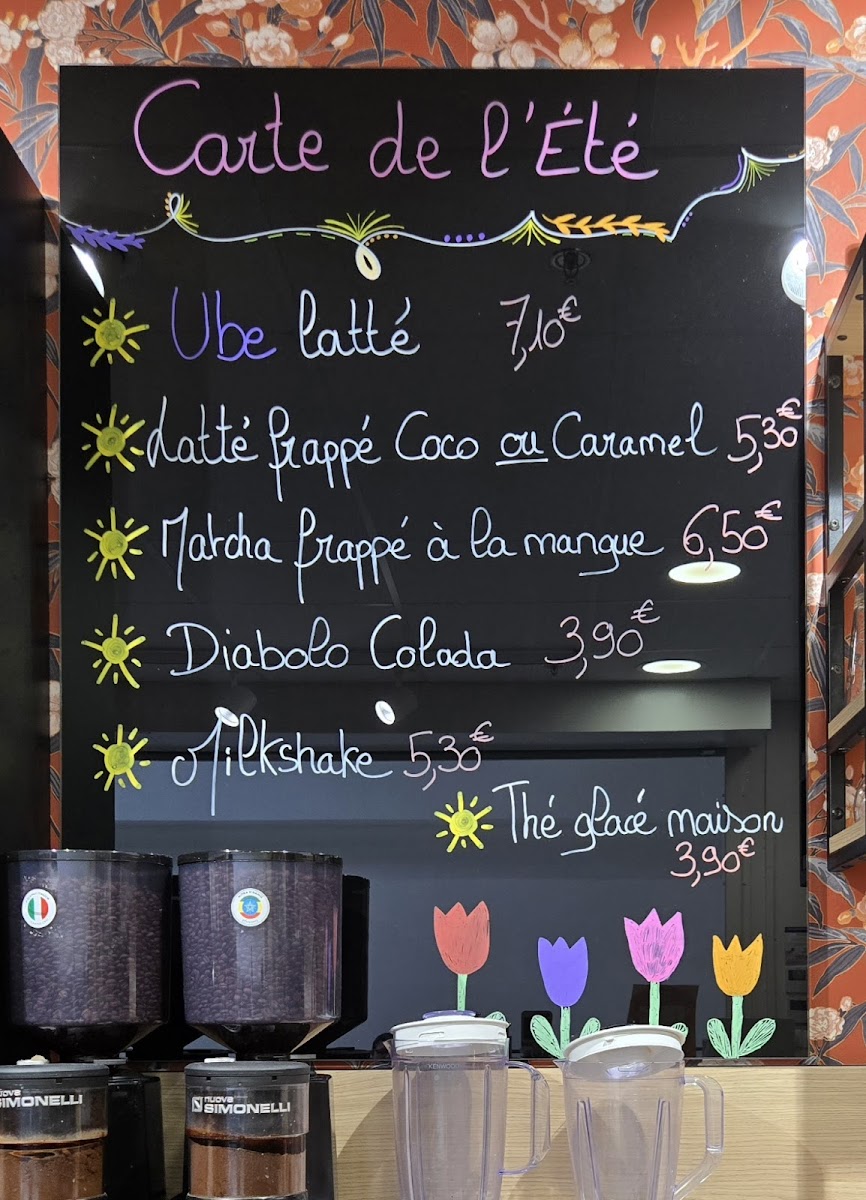 Carte de l'Été
Ube latté 7,10€
Latté frappé Coco ou Caramel 5,30€
Matcha frappé à la mangue 6,50€
Diabolo Colada 3,90€
Milkshake 5,30€
Thé glacé maison
3,90€
KENWOOD
nuova
SIMONELLI
nuova
SIMONELLI